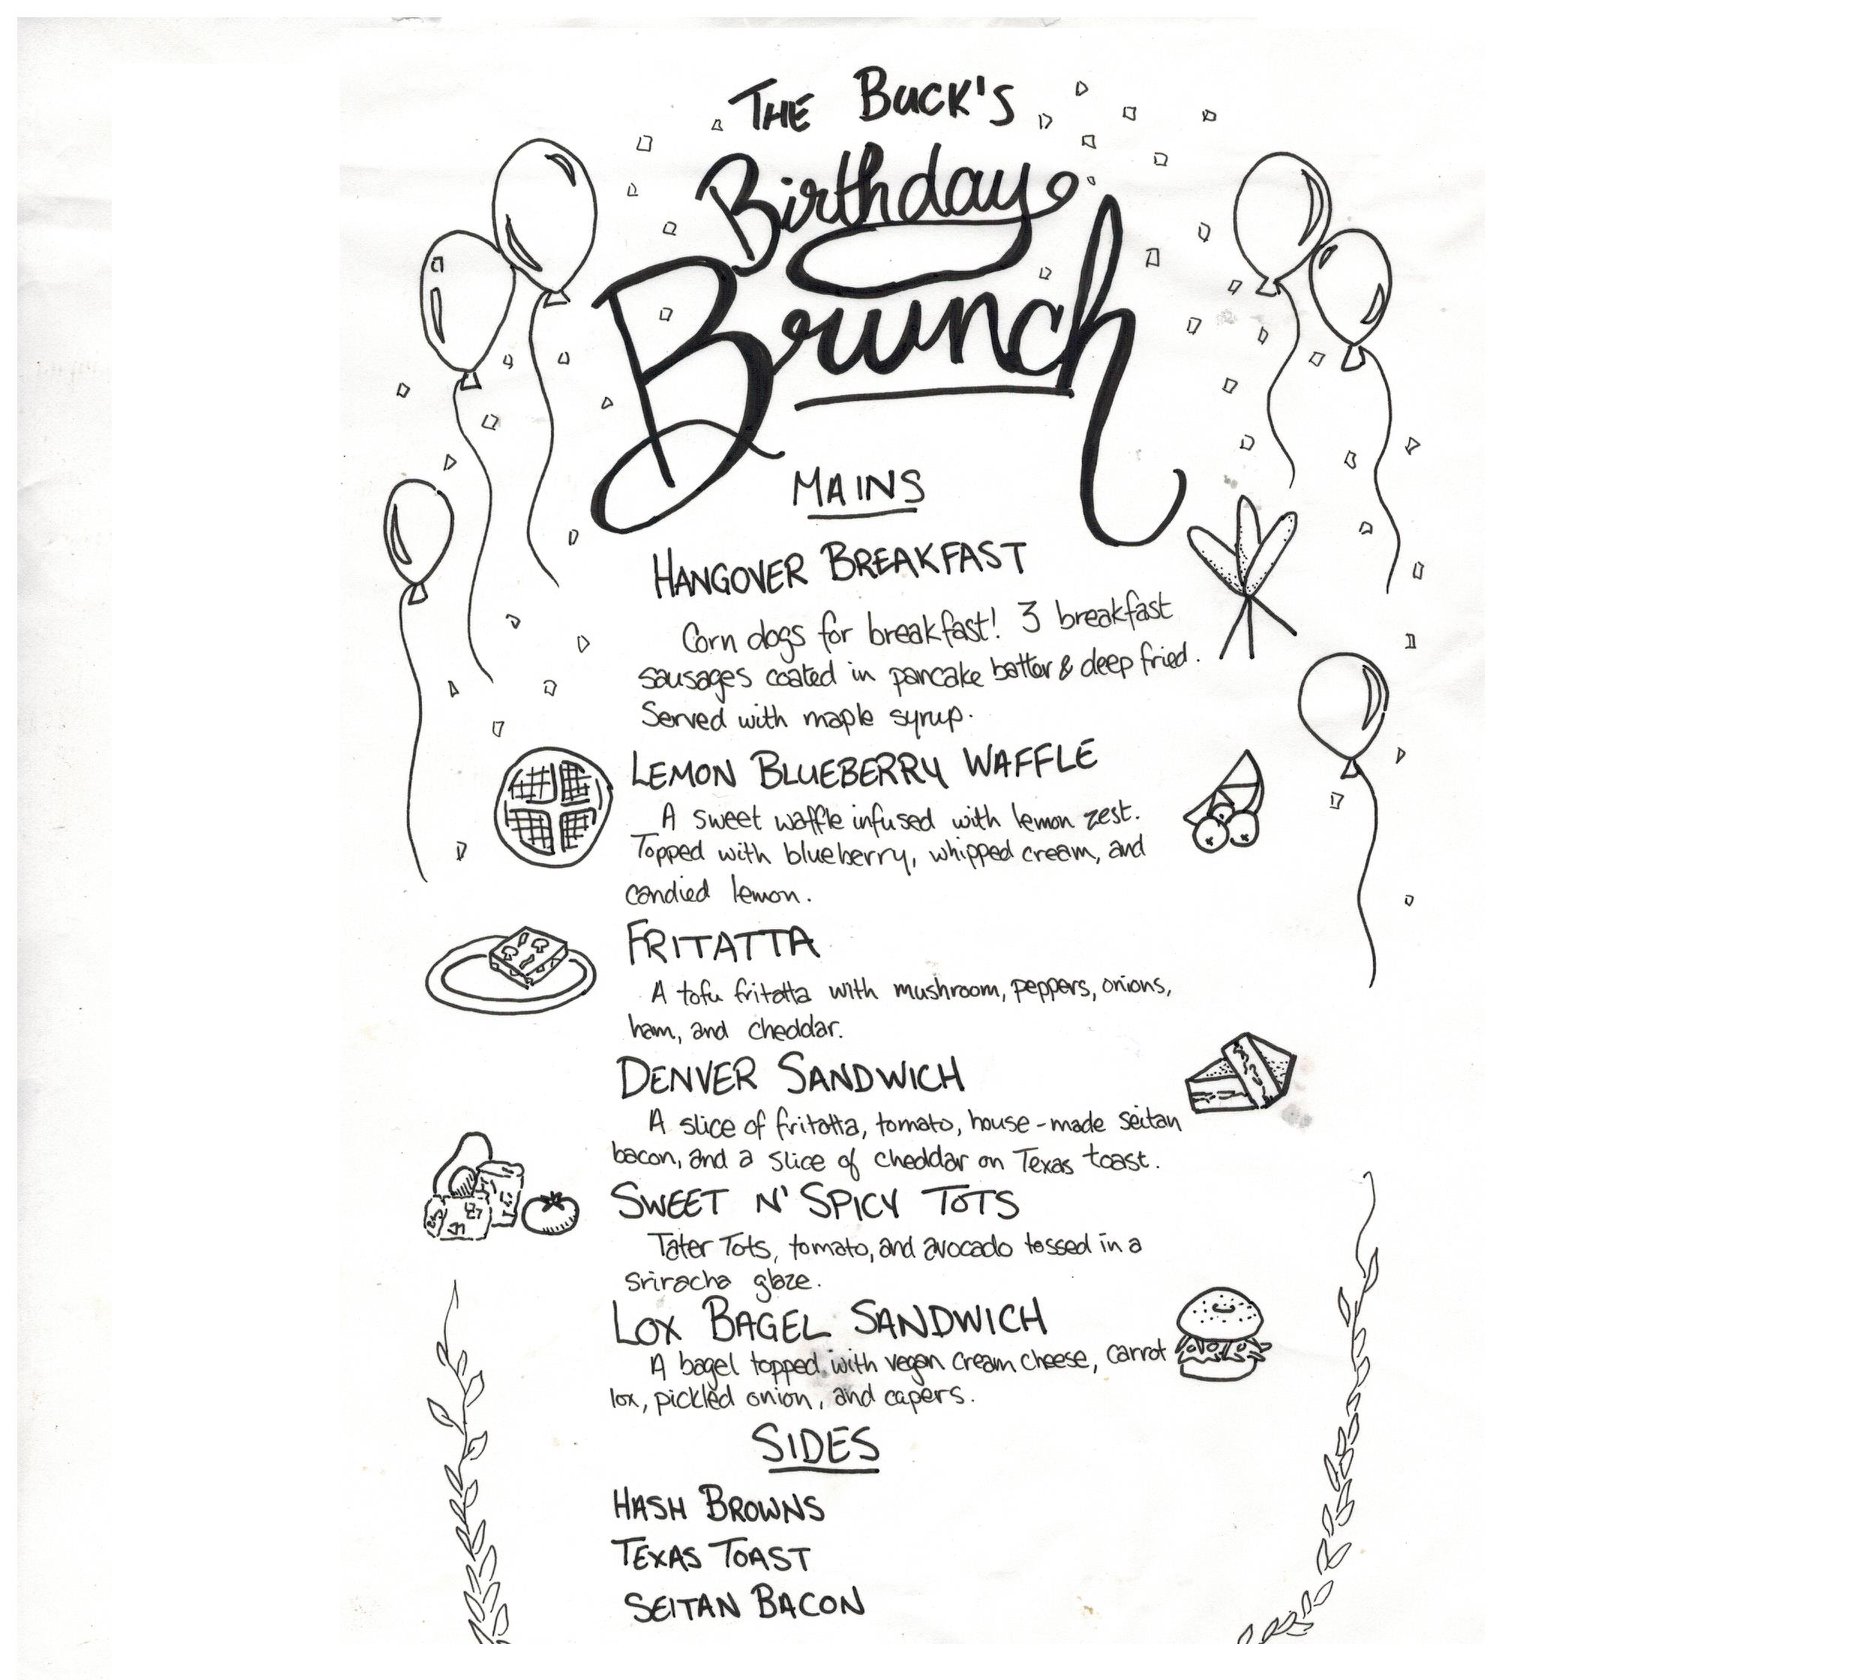 THE BUCK'S
Birthday
Brunch
MAINS
HANGOVER BREAKFAST
Corn dogs for breakfast! 3 breakfast
sausages coated in pancake batter & deep fried.
Served with maple syrup.
LEMON BLUEBERRY WAFFLE
A sweet waffle infused with lemon zest.
Topped with blueberry, whipped cream, and
candied lemon.
FRITATTA
A tofu fritatta with mushroom, peppers, onions,
ham, and cheddar.
DENVER SANDWICH
A slice of fritatta, tomato, house-made seitan
bacon, and a slice of cheddar on Texas toast.
SWEET N' SPICY TOTS
Tater Tots, tomato, and avocado tossed in a
sriracha glaze.
LOX BAGEL SANDWICH
A bagel topped with vegan cream cheese, carrot
lox, pickled onion, and capers.
SIDES
HASH BROWNS
TEXAS TOAST
SEITAN BACON